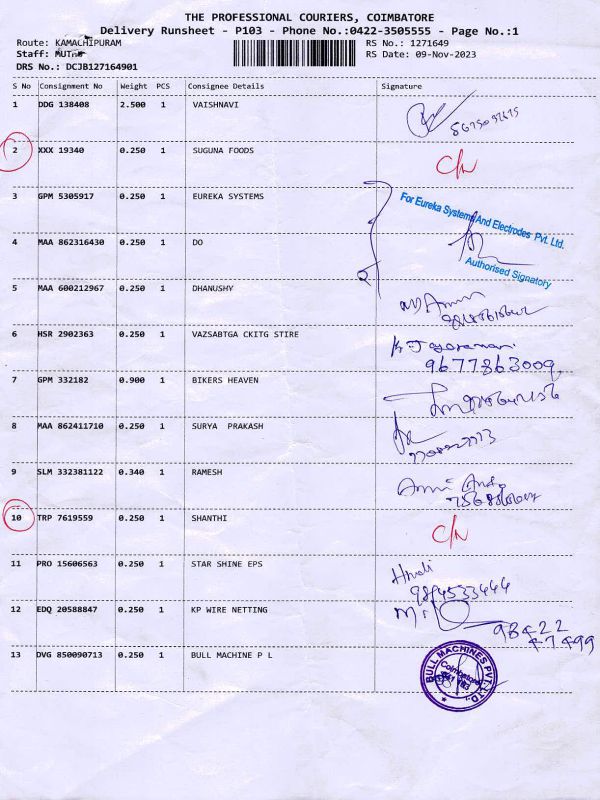 THE PROFESSIONAL COURIERS, COIMBATORE
Delivery Runsheet - P103 - Phone No.:0422-3505555 - Page No.:1
Route: KAMACHIPURAM RS No.: 1271649
Staff: RS Date: 09-Nov-2023
DRS No.: DCJB127164901
S No Consignment No Weight PCS Consignee Details Signature
1 DDG 138408 2.500 1 VAISHNAVI
2 XXX 19340 0.250 1 SUGUNA FOODS
3 GPM 5305917 0.250 1 EUREKA SYSTEMS
For Eureka Systems And Electrodes Pvt. Ltd.
4 MAA 862316430 0.250 1 DO
Authorised Signatory
5 MAA 600212967 0.250 1 DHANUSHY
6 HSR 2902363 0.250 1 VAZSABTGA CKITG STIRE
9677863009
7 GPM 332182 0.900 1 BIKERS HEAVEN
8 MAA 862411710 0.250 1 SURYA PRAKASH
9 SLM 332381122 0.340 1 RAMESH
10 TRP 7619559 0.250 1 SHANTHI
11 PRO 15606563 0.250 1 STAR SHINE EPS
9894533444
12 EDQ 20588847 0.250 1 KP WIRE NETTING
98422
47499
13 DVG 850090713 0.250 1 BULL MACHINE P L
BULL MACHINES PVT. LTD.
Coimbatore